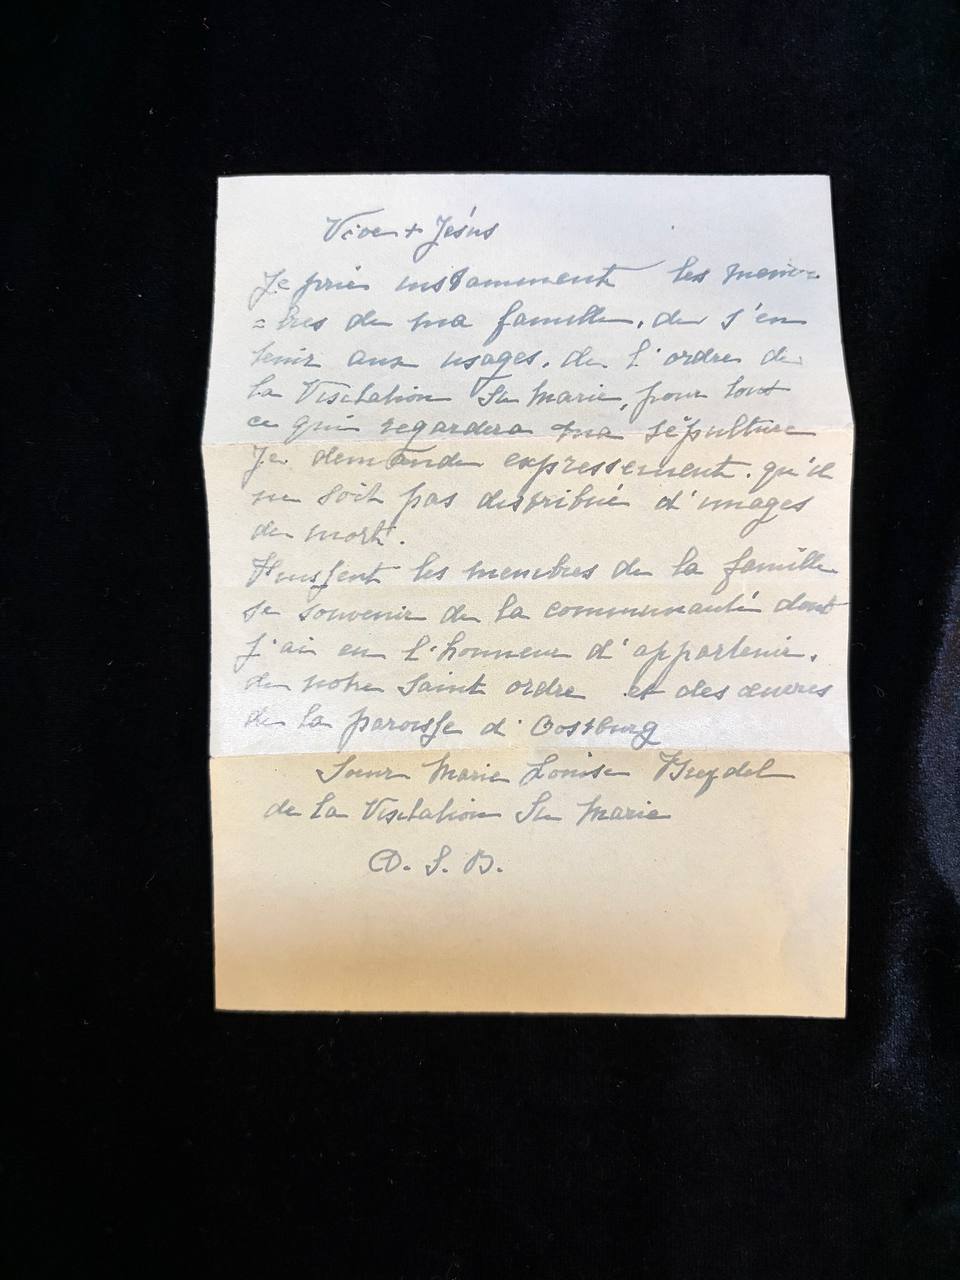 Vive + Jésus
Je prie instamment les mem-
= bres de ma famille, de s'en
tenir aux usages, de l'ordre de
la Visitation Ste Marie, pour tout
ce qui regardera ma sépulture
Je demande expressement qu'il
ne soit pas distribué d'images
de mort.
Puissent les membres de la famille
se souvenir de la communauté dont
j'ai eu l'honneur d'appartenir,
de notre saint ordre et des œuvres
de la paroisse d'Oostburg
Sœur Marie Louise
de la Visitation Ste Marie
D. S. B.